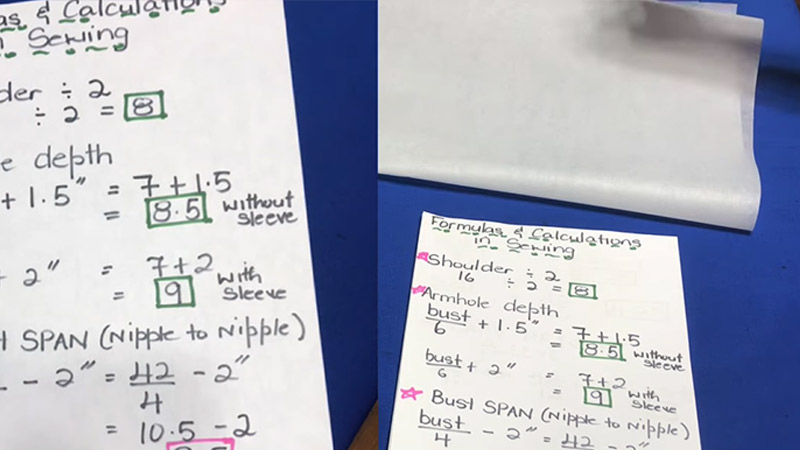 as & Calculations
in Sewing
der ÷ 2
÷ 2 = 8
e depth
+ 1.5" = 7 + 1.5
= 8.5 without
sleeve
2" = 7 + 2
= 9 with
sleeve
SPAN (Nipple to Nipple)
- 2" = 42/4 - 2"
= 10.5 - 2
Formulas & Calculations
in Sewing
Shoulder ÷ 2
16 ÷ 2 = 8
Armhole depth
bust/6 + 1.5" = 7 + 1.5
= 8.5 without
sleeve
bust/6 + 2" = 7 + 2
= 9 with
sleeve
Bust SPAN (Nipple to Nipple)
bust/4 - 2" = 42 - 2"